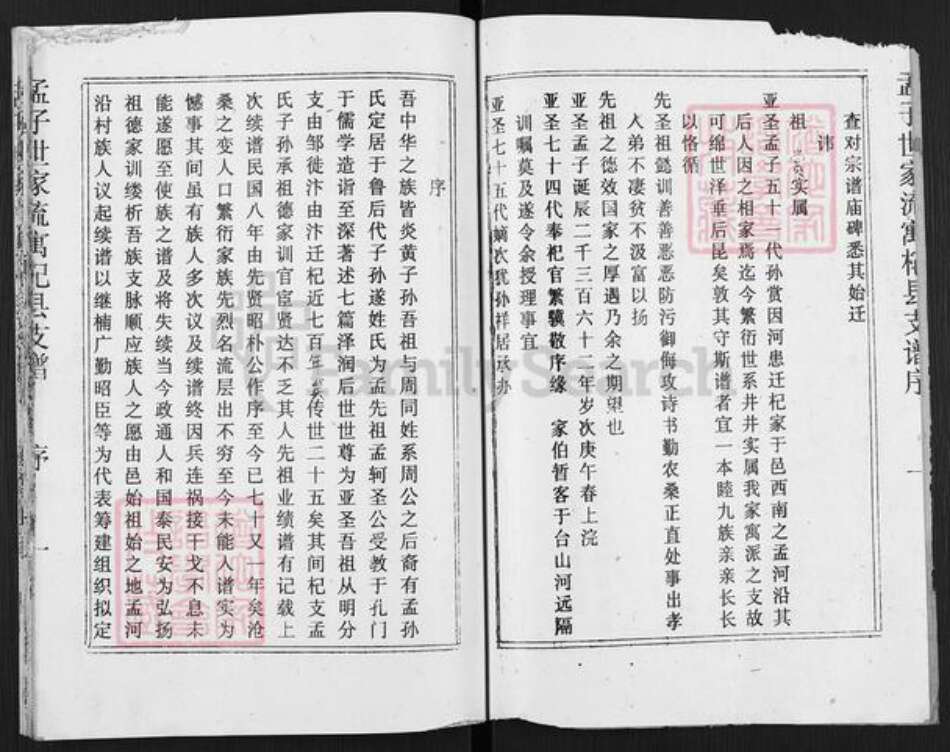 孟子世家流寓杞县支谱序 一
查对宗谱庙碑悉其始迁
祖 讳 实属
亚圣孟子五十一代孙赏因河患迁杞家于邑西南之孟河沿其
后人因之相家焉迄今繁衍世系井井实属我家寓派之支故
可绵世泽垂后昆矣敦其守斯谱者宜一本睦九族亲亲长长
以恪循
先圣祖懿训善善恶恶防污御侮攻诗书勤农桑正直处事出孝
入弟不凄贫不汲富以扬
先祖之德效国家之厚遇乃余之期望也
亚圣孟子诞辰二千三百六十二年岁次庚午春上浣
亚圣七十四代奉祀官繁骥敬序缘 家伯暂客于台山河远隔
训嘱莫及遂令余授理事宜
亚圣七十五代嫡次犹孙祥居承办
序
吾中华之族皆炎黄子孙吾祖与周同姓系周公之后裔有孟孙
氏定居于鲁后代子孙遂姓氏为孟先祖孟轲圣公受教于孔门
于儒学造诣至深著述七篇泽润后世世尊为亚圣吾祖从明分
支由邹徙汴由汴迁杞近七百年矣传世二十五矣其间杞支孟
氏子孙承祖德家训官宦贤达不乏其人先祖业绩谱有记载上
次续谱民国八年由先贤昭朴公作序至今已七十又一年矣沧
桑之变人口繁衍家族先烈名流层出不穷至今未能入谱实为
憾事其间虽有族人多次议及续谱终因兵连祸接干戈不息未
能遂愿至使族之谱及将失续当今政通人和国泰民安为弘扬
祖德家训缕析吾族支脉顺应族人之愿由邑始祖始之地孟河
沿村族人议起续谱以继楠广勤昭臣等为代表筹建组织拟定
孟子世家流寓杞县支谱 序 一
FamilySearch